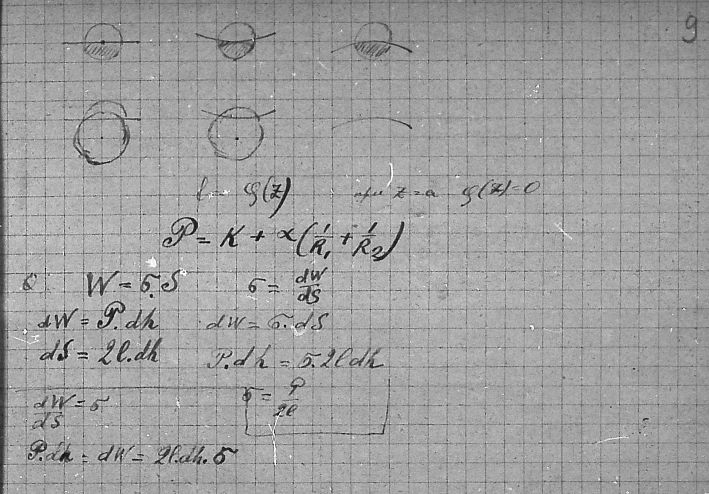 9
f = φ(z) при z=a φ(z)=0
P = K + α(1/R₁ + 1/R₂)
W = σ.S σ = dW/dS
dW = P.dh dW = σ.dS
dS = 2l.dh P.dh = σ.2l dh
dW/dS = σ σ = P/2l
P.dh = dW = 2l.dh.σ